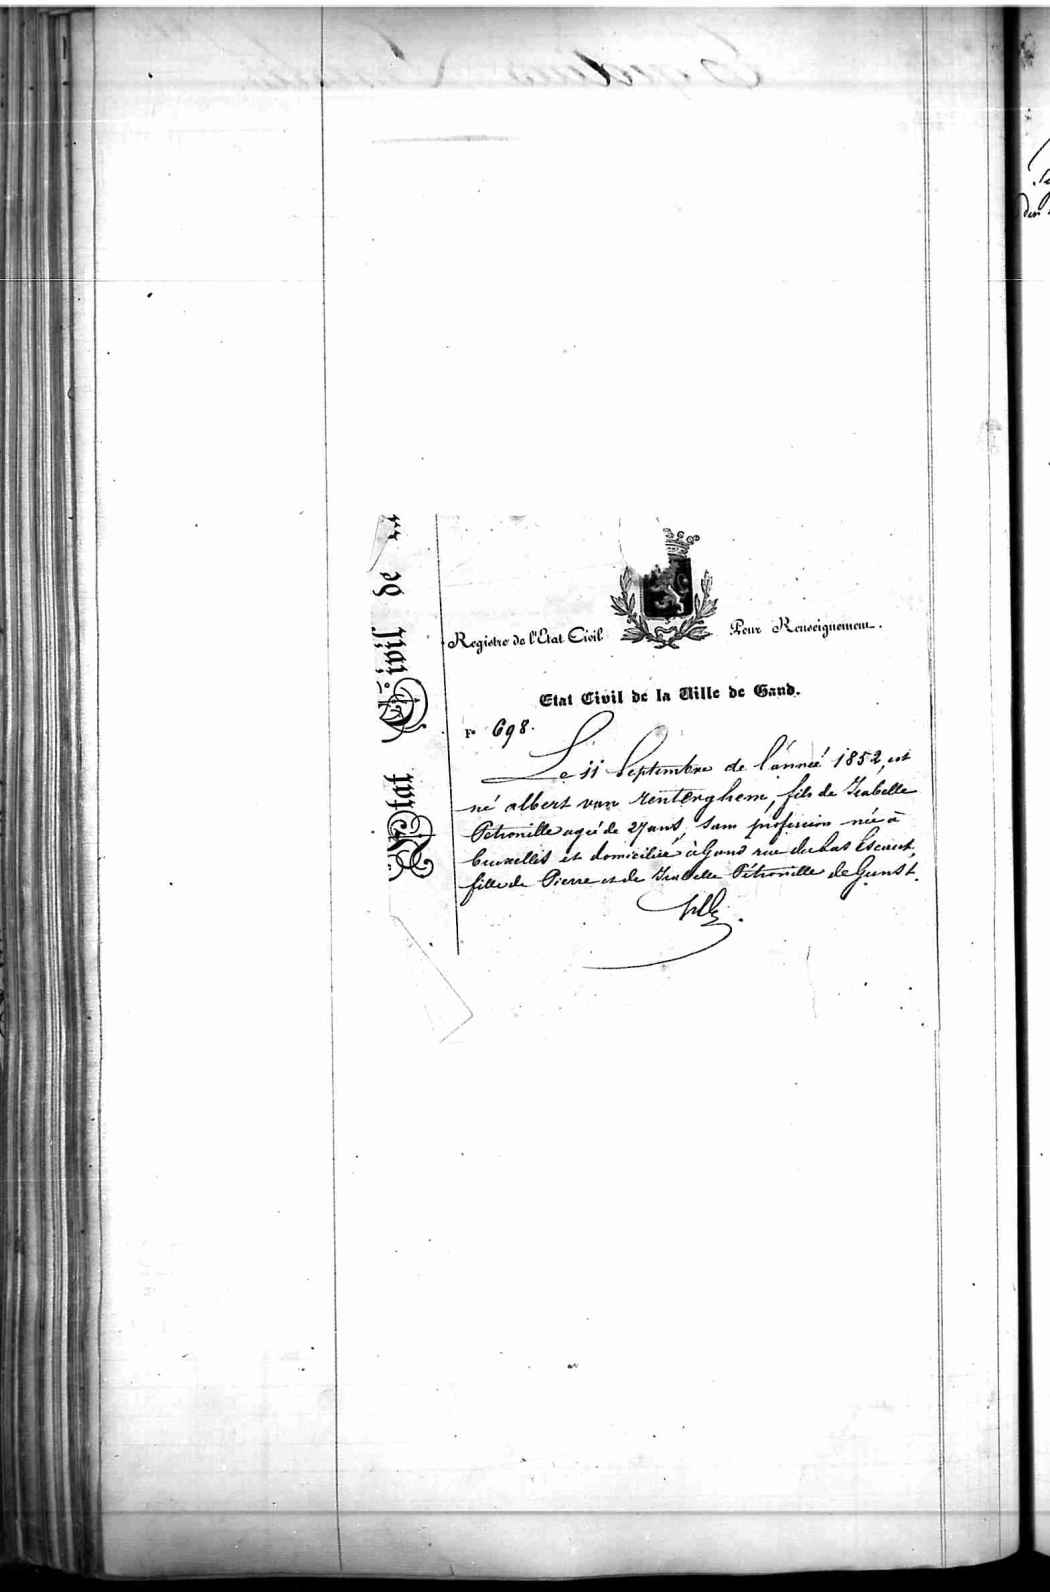 Etat Civil de
Registre de l'Etat Civil
Pour Renseignement.
Etat Civil de la Ville de Gand.
Fo 698.
Le 11 Septembre de l'année 1852, est
né albert van Renterghem, fils de Isabelle
Pétronille agée de 27 ans, sans profession née à
bruxelles et domiciliée à Gand rue du bas Escaut,
fille de Pierre et de Isabelle Pétronille de Gunst.